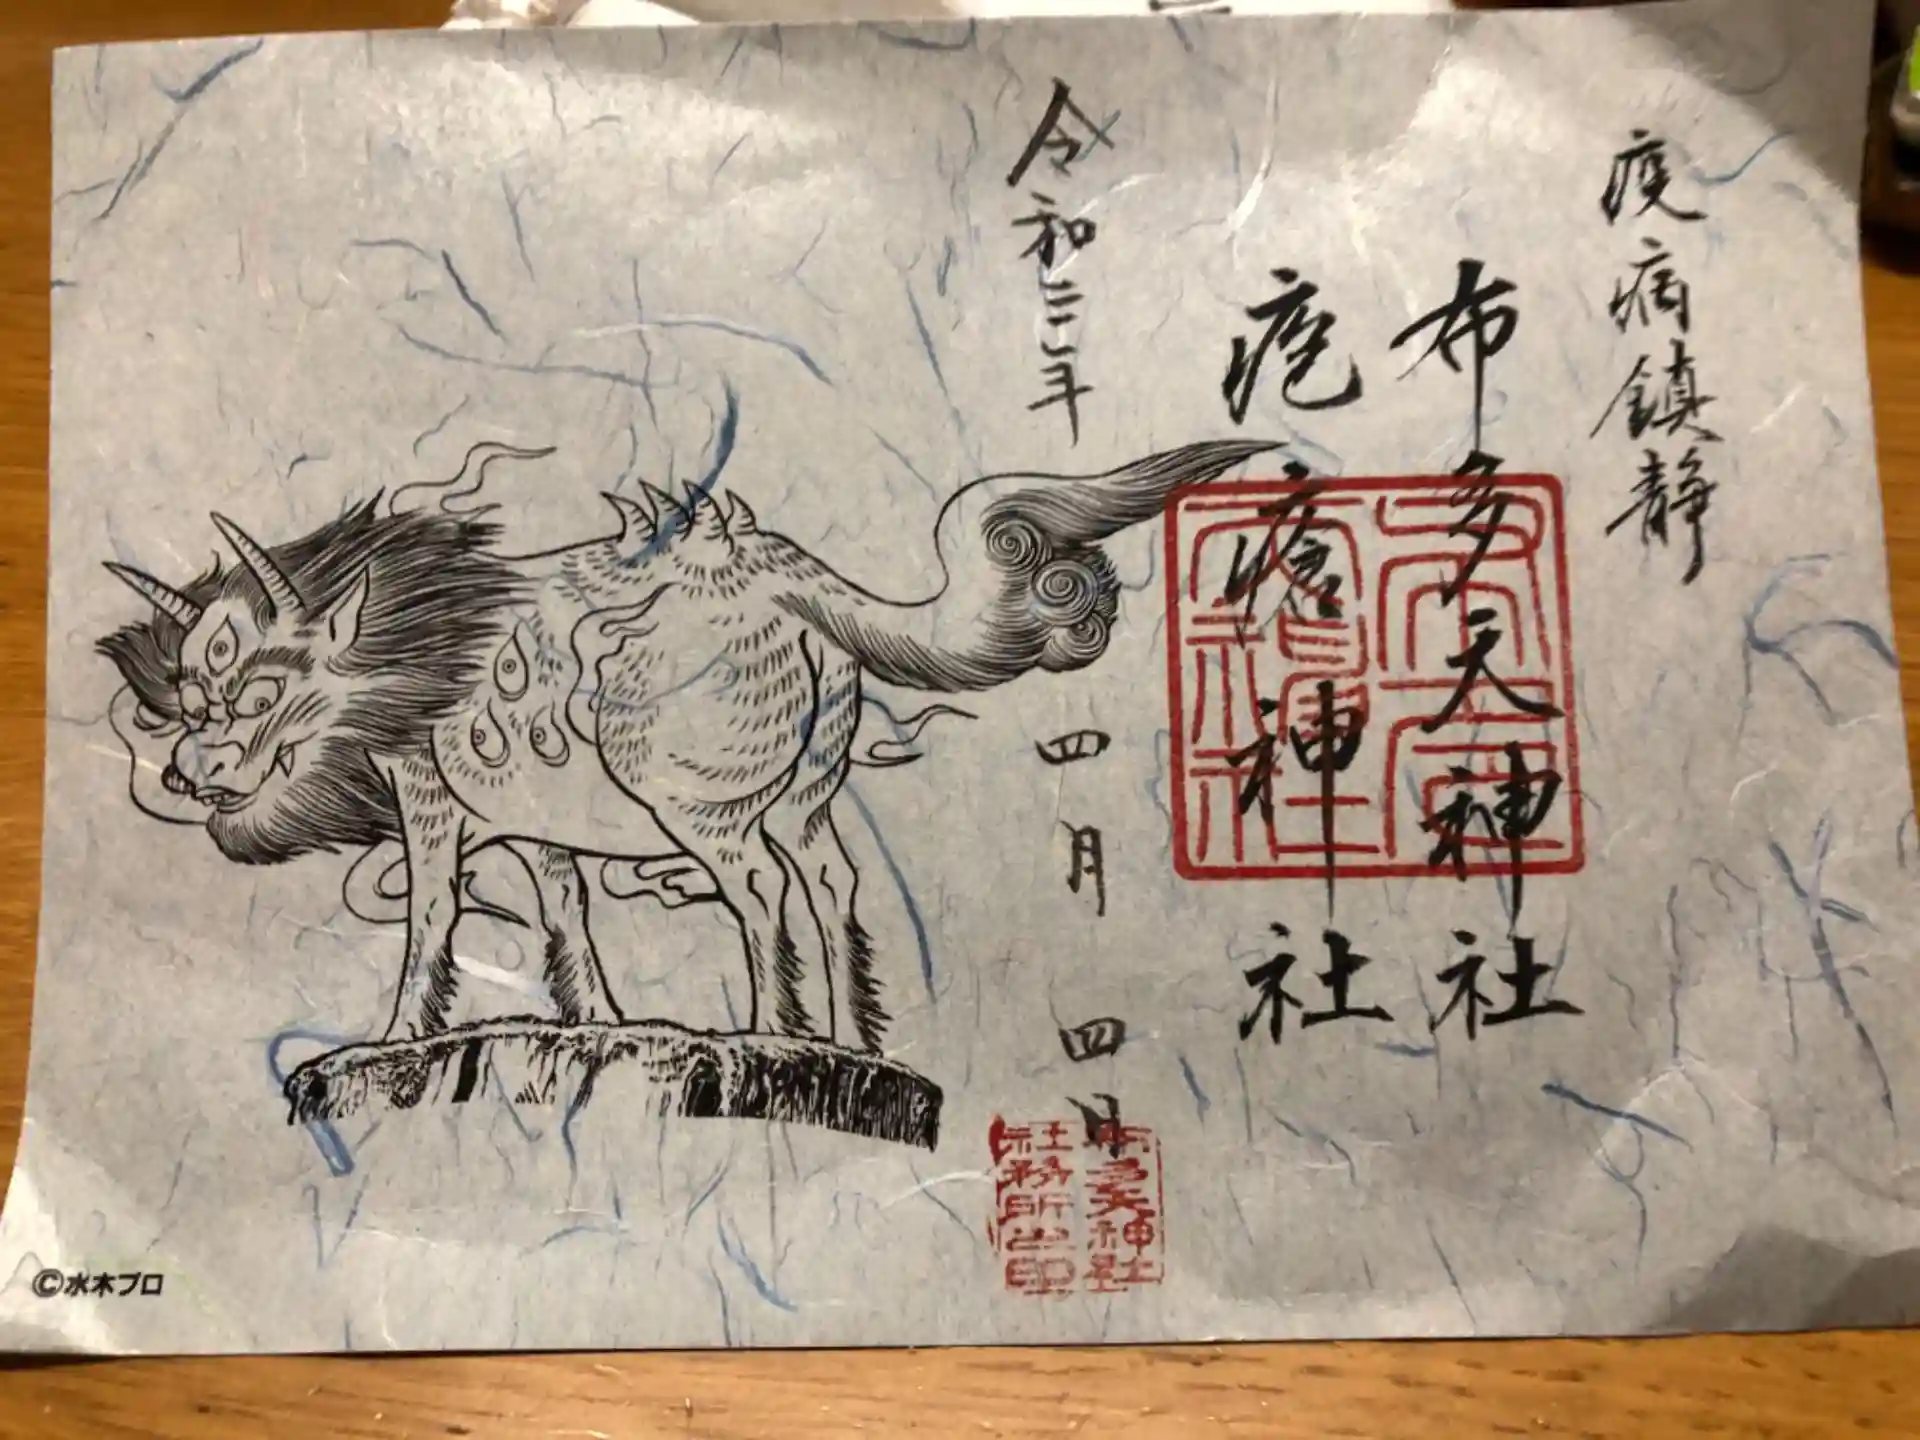 疫病鎮静
布多天神社
疱瘡神社
令和三年 四月 四日
布多天神社
社務所之印
©水木プロ